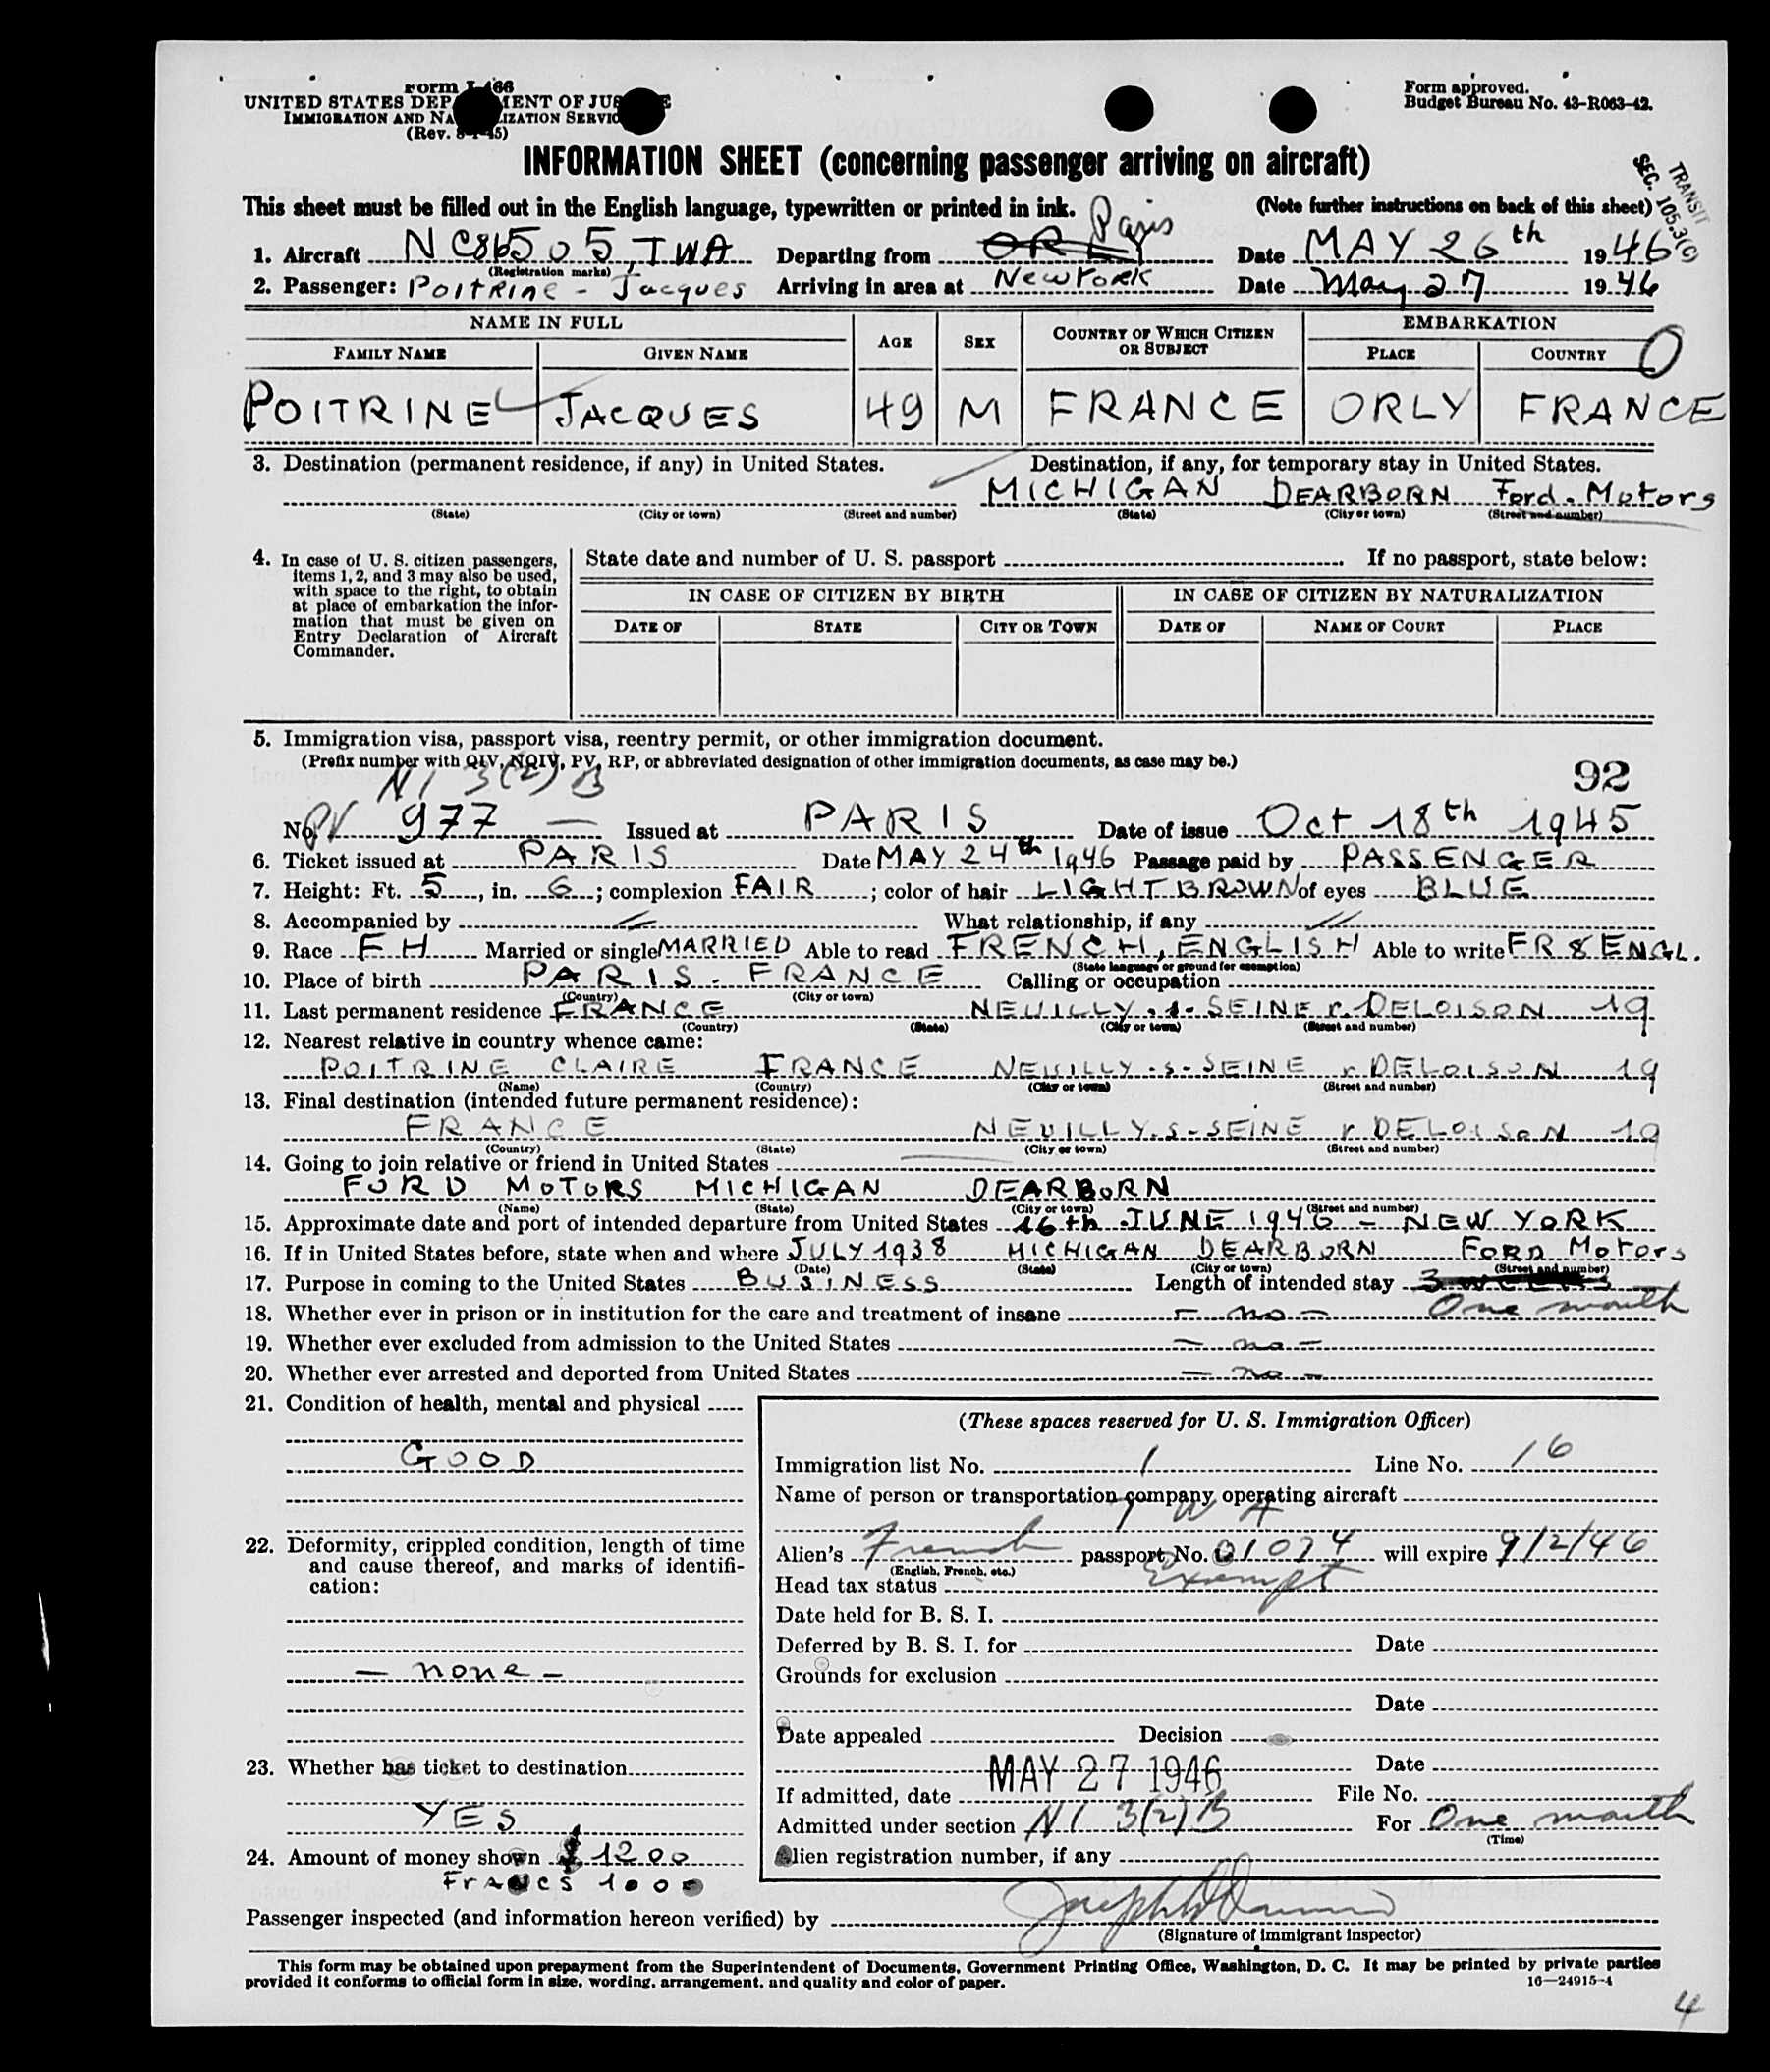 Form I-466
UNITED STATES DEPARTMENT OF JUSTICE
IMMIGRATION AND NATURALIZATION SERVICE
(Rev. 8-1-45)
Form approved.
Budget Bureau No. 43-R063-42.
INFORMATION SHEET (concerning passenger arriving on aircraft)
TRANSIT
SEC. 105.3(C)
This sheet must be filled out in the English language, typewritten or printed in ink. (Note further instructions on back of this sheet)
Paris
1. Aircraft NC86505, TWA Departing from ORLY Date MAY 26th 1946
(Registration marks)
2. Passenger: Poitrine - Jacques Arriving in area at New York Date May 27 1946
NAME IN FULL AGE SEX COUNTRY OF WHICH CITIZEN OR SUBJECT EMBARKATION
FAMILY NAME GIVEN NAME PLACE COUNTRY
O
POITRINE JACQUES 49 M FRANCE ORLY FRANCE
3. Destination (permanent residence, if any) in United States. Destination, if any, for temporary stay in United States.
MICHIGAN DEARBORN Ford. Motors
(State) (City or town) (Street and number) (State) (City or town) (Street and number)
4. In case of U. S. citizen passengers,
items 1, 2, and 3 may also be used,
with space to the right, to obtain
at place of embarkation the infor-
mation that must be given on
Entry Declaration of Aircraft
Commander.
State date and number of U. S. passport If no passport, state below:
IN CASE OF CITIZEN BY BIRTH IN CASE OF CITIZEN BY NATURALIZATION
DATE OF STATE CITY OR TOWN DATE OF NAME OF COURT PLACE
5. Immigration visa, passport visa, reentry permit, or other immigration document.
(Prefix number with QIV, NQIV, PV, RP, or abbreviated designation of other immigration documents, as case may be.)
92
NI 3(2) B
No. PV 977 — Issued at PARIS Date of issue Oct 18th 1945
6. Ticket issued at PARIS Date MAY 24th 1946 Passage paid by PASSENGER
7. Height: Ft. 5, in. 6; complexion FAIR; color of hair LIGHT BROWN of eyes BLUE
8. Accompanied by What relationship, if any
9. Race FH Married or single MARRIED Able to read FRENCH, ENGLISH Able to write FR & ENGL.
(State language or ground for exemption)
10. Place of birth PARIS. FRANCE Calling or occupation
(Country) (City or town)
11. Last permanent residence FRANCE NEUILLY.s-SEINE r. DELOISON 19
(Country) (State) (City or town) (Street and number)
12. Nearest relative in country whence came:
POITRINE CLAIRE FRANCE NEUILLY.s-SEINE r DELOISON 19
(Name) (Country) (City or town) (Street and number)
13. Final destination (intended future permanent residence):
FRANCE NEUILLY.s-SEINE r DELOISON 19
(Country) (State) (City or town) (Street and number)
14. Going to join relative or friend in United States
FORD MOTORS MICHIGAN DEARBORN
(Name) (State) (City or town) (Street and number)
15. Approximate date and port of intended departure from United States 16th JUNE 1946 - NEW YORK
16. If in United States before, state when and where JULY 1938 MICHIGAN DEARBORN FORD Motors
(Date) (State) (City or town) (Street and number)
17. Purpose in coming to the United States BUSINESS Length of intended stay 3 weeks
One month
18. Whether ever in prison or in institution for the care and treatment of insane - no -
19. Whether ever excluded from admission to the United States - no -
20. Whether ever arrested and deported from United States - no -
21. Condition of health, mental and physical
GOOD
22. Deformity, crippled condition, length of time
and cause thereof, and marks of identifi-
cation:
- none -
23. Whether has ticket to destination
YES
24. Amount of money shown $ 1200
FRANCS 1000
(These spaces reserved for U. S. Immigration Officer)
Immigration list No. 1 Line No. 16
Name of person or transportation company operating aircraft
T W A
Alien's French passport No. 01074 will expire 9/2/46
(English, French, etc.)
Head tax status Exempt
Date held for B. S. I.
Deferred by B. S. I. for Date
Grounds for exclusion
Date
Date appealed Decision
Date
If admitted, date MAY 27 1946 File No.
Admitted under section NI 3(2)B For One month
(Time)
Alien registration number, if any
Passenger inspected (and information hereon verified) by
(Signature of immigrant inspector)
This form may be obtained upon prepayment from the Superintendent of Documents, Government Printing Office, Washington, D. C. It may be printed by private parties
provided it conforms to official form in size, wording, arrangement, and quality and color of paper.
16—24915-4
4